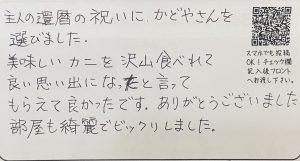 主人の還暦の祝いに、かどやさんを
選びました.
美味しい カニを 沢山食べれて
良い思い出になったと言って
もらえて良かったです。ありがとうございました
部屋も綺麗でビックリしました。
スマホでも投稿
OK！チェック欄
記入後フロント
へお渡し下さい。